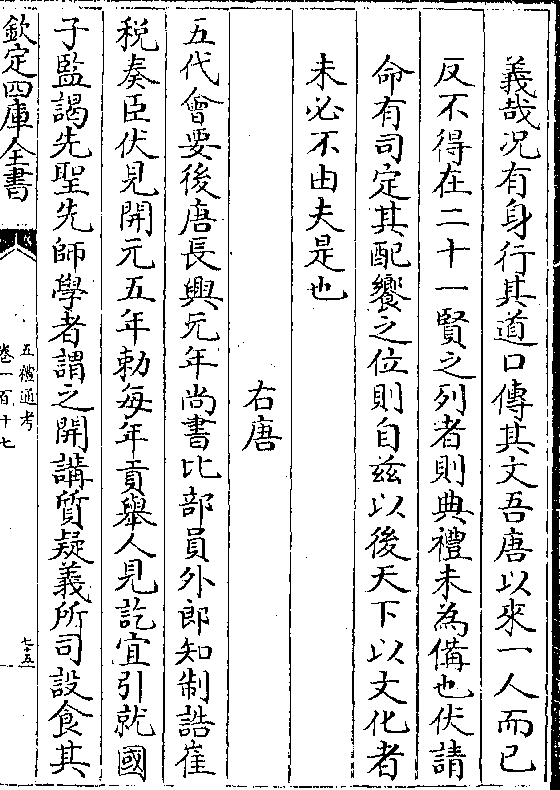 義哉况有身行其道口傳其文吾唐以來一人而已
反不得在二十一賢之列者則典禮未為備也伏請
命有司定其配饗之位則自兹以後天下以文化者
未必不由夫是也
右唐
五代會要後唐長興元年尚書比部員外郎知制誥崔
稅奏臣伏見開元五年勅每年貢舉人見訖宜引就國
子監謁先聖先師學者謂之開講質疑義所司設食其
欽定四庫全書
五禮通考
卷一百十七
七五